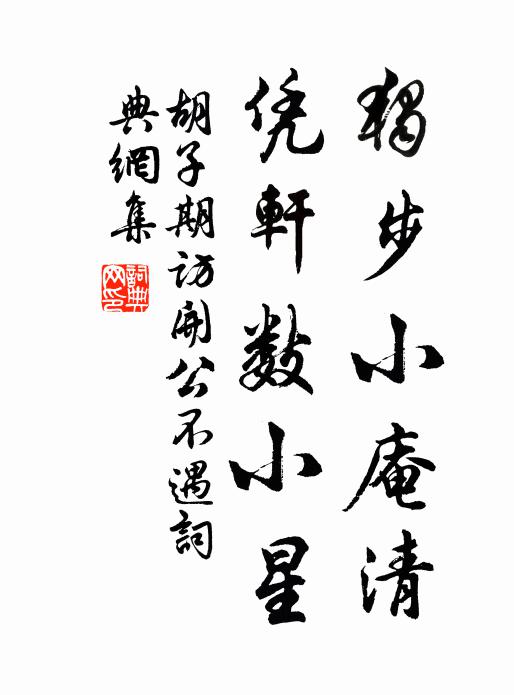 獨步小庵清
凭軒數小星
胡子期訪開公不遇詞
典網集
詞典
网印